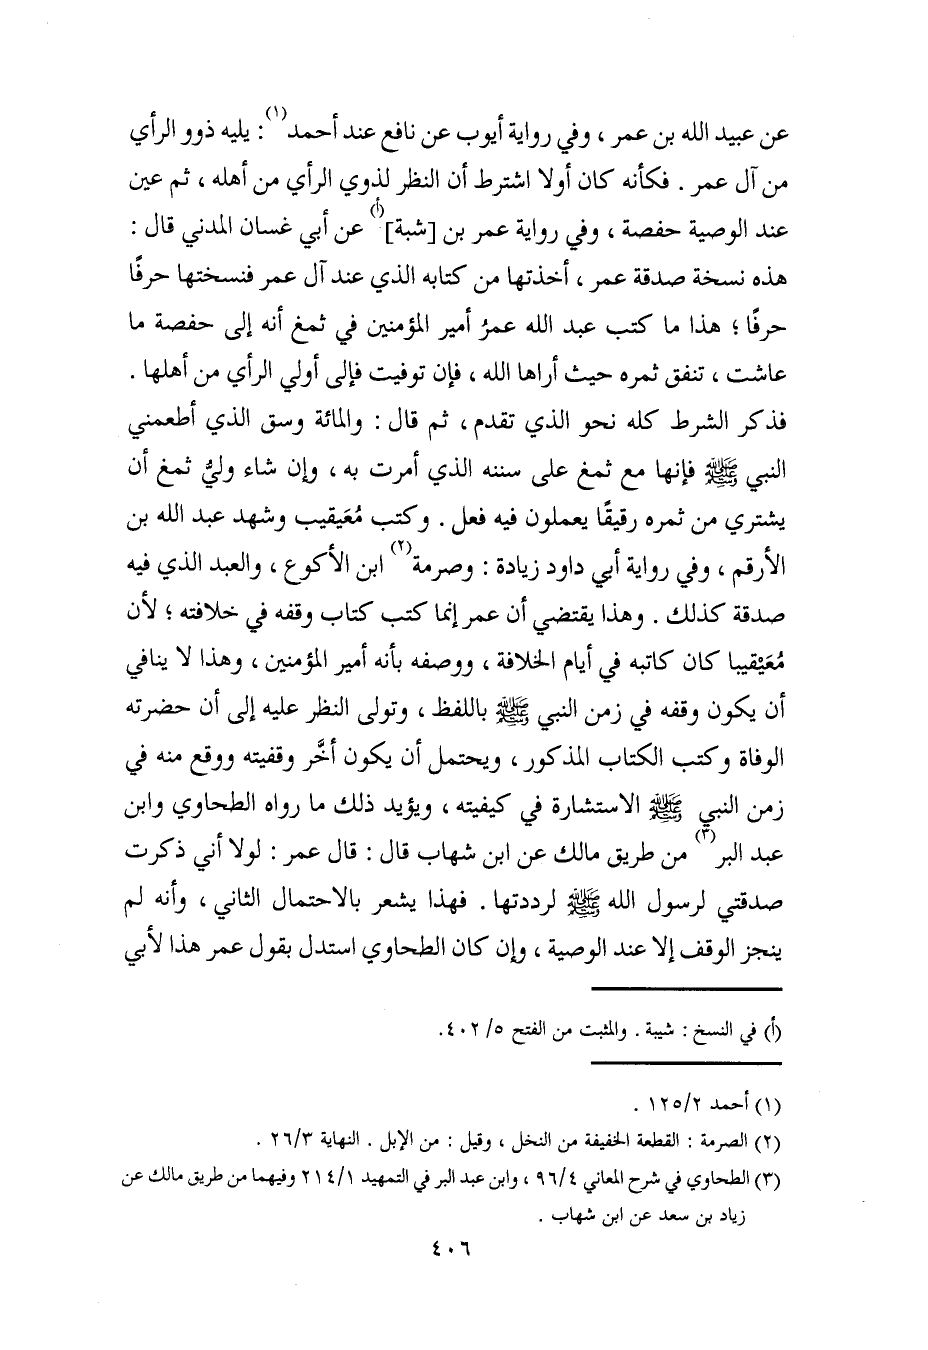 عن عبيد الله بن عمر ، وفي رواية أيوب عن نافع عند أحمد(١) : يليه ذوو الرأي
من آل عمر . فكأنه كان أولا اشترط أن النظر لذوي الرأي من أهله ، ثم عين
عند الوصية حفصة ، وفي رواية عمر بن [شبة](أ) عن أبي غسان المدني قال :
هذه نسخة صدقة عمر ، أخذتها من كتابه الذي عند آل عمر فنسختها حرفًا
حرفًا ؛ هذا ما كتب عبد الله عمرُ أمير المؤمنين في ثمغ أنه إلى حفصة ما
عاشت ، تنفق ثمره حيث أراها الله ، فإن توفيت فإلى أولي الرأي من أهلها .
فذكر الشرط كله نحو الذي تقدم ، ثم قال : والمائة وسق الذي أطعمني
النبي ﷺ فإنها مع ثمغ على سننه الذي أمرت به ، وإن شاء وليُّ ثمغ أن
يشتري من ثمره رقيقًا يعملون فيه فعل . وكتب مُعَيقيب وشهد عبد الله بن
الأرقم ، وفي رواية أبي داود زيادة : وصرمة(٢) ابن الأكوع ، والعبد الذي فيه
صدقة كذلك . وهذا يقتضي أن عمر إنما كتب كتاب وقفه في خلافته ؛ لأن
مُعَيْقيبا كان كاتبه في أيام الخلافة ، ووصفه بأنه أمير المؤمنين ، وهذا لا ينافي
أن يكون وقفه في زمن النبي ﷺ باللفظ ، وتولى النظر عليه إلى أن حضرته
الوفاة وكتب الكتاب المذكور ، ويحتمل أن يكون أخَّر وقفيته ووقع منه في
زمن النبي ﷺ الاستشارة في كيفيته ، ويؤيد ذلك ما رواه الطحاوي وابن
عبد البر(٣) من طريق مالك عن ابن شهاب قال : قال عمر : لولا أني ذكرت
صدقتي لرسول الله ﷺ لرددتها . فهذا يشعر بالاحتمال الثاني ، وأنه لم
ينجز الوقف إلا عند الوصية ، وإن كان الطحاوي استدل بقول عمر هذا لأبي
(أ) في النسخ : شيبة . والمثبت من الفتح ٥/ ٤٠٢.
(١) أحمد ١٢٥/٢ .
(٢) الصرمة : القطعة الخفيفة من النخل ، وقيل : من الإبل . النهاية ٢٦/٣ .
(٣) الطحاوي في شرح المعاني ٩٦/٤ ، وابن عبد البر في التمهيد ٢١٤/١ وفيهما من طريق مالك عن
زياد بن سعد عن ابن شهاب .
٤٠٦